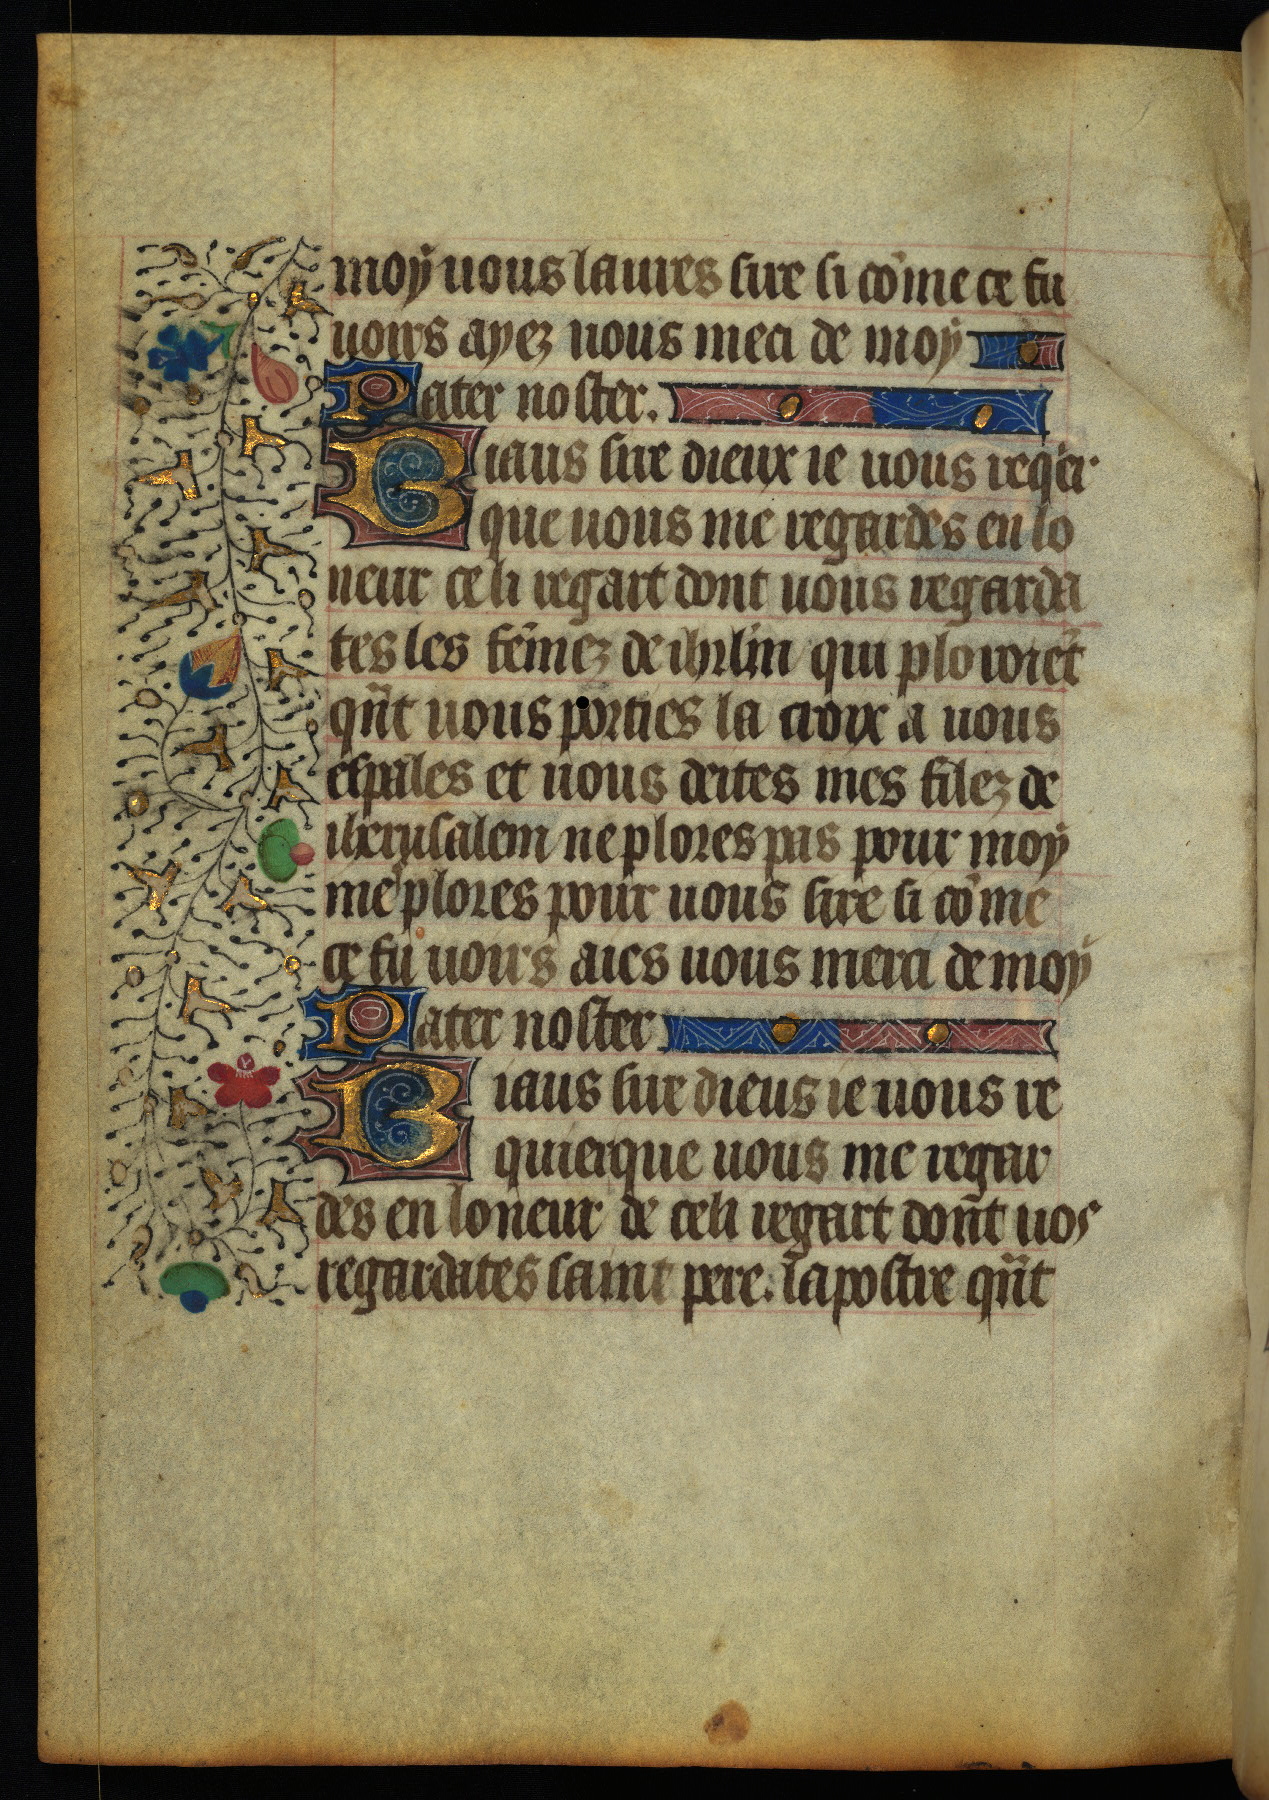 moÿ uous laures sire si cõme ce fu
uoirs ayez uous meci de moÿ
Pater noster.
Biaus sire dieux ie uous reqier
que uous me regardes en lo
neur celi regart dont uous regarda
tes les fẽmez de ihrlm̄ qui ploroiẽt
qñt uous porties la croix a uous
espales et uous deites mes filez de
iherusalem ne plores pas pour moÿ
me plores pour uous sire si cõme
ce fu uoirs aies uous merci de moÿ
Pater noster
Biaus sire dieus ie uous re
quier que uous me regar
des en loneur de celi regart dont uos
regardates saint pere. lapostre qñt